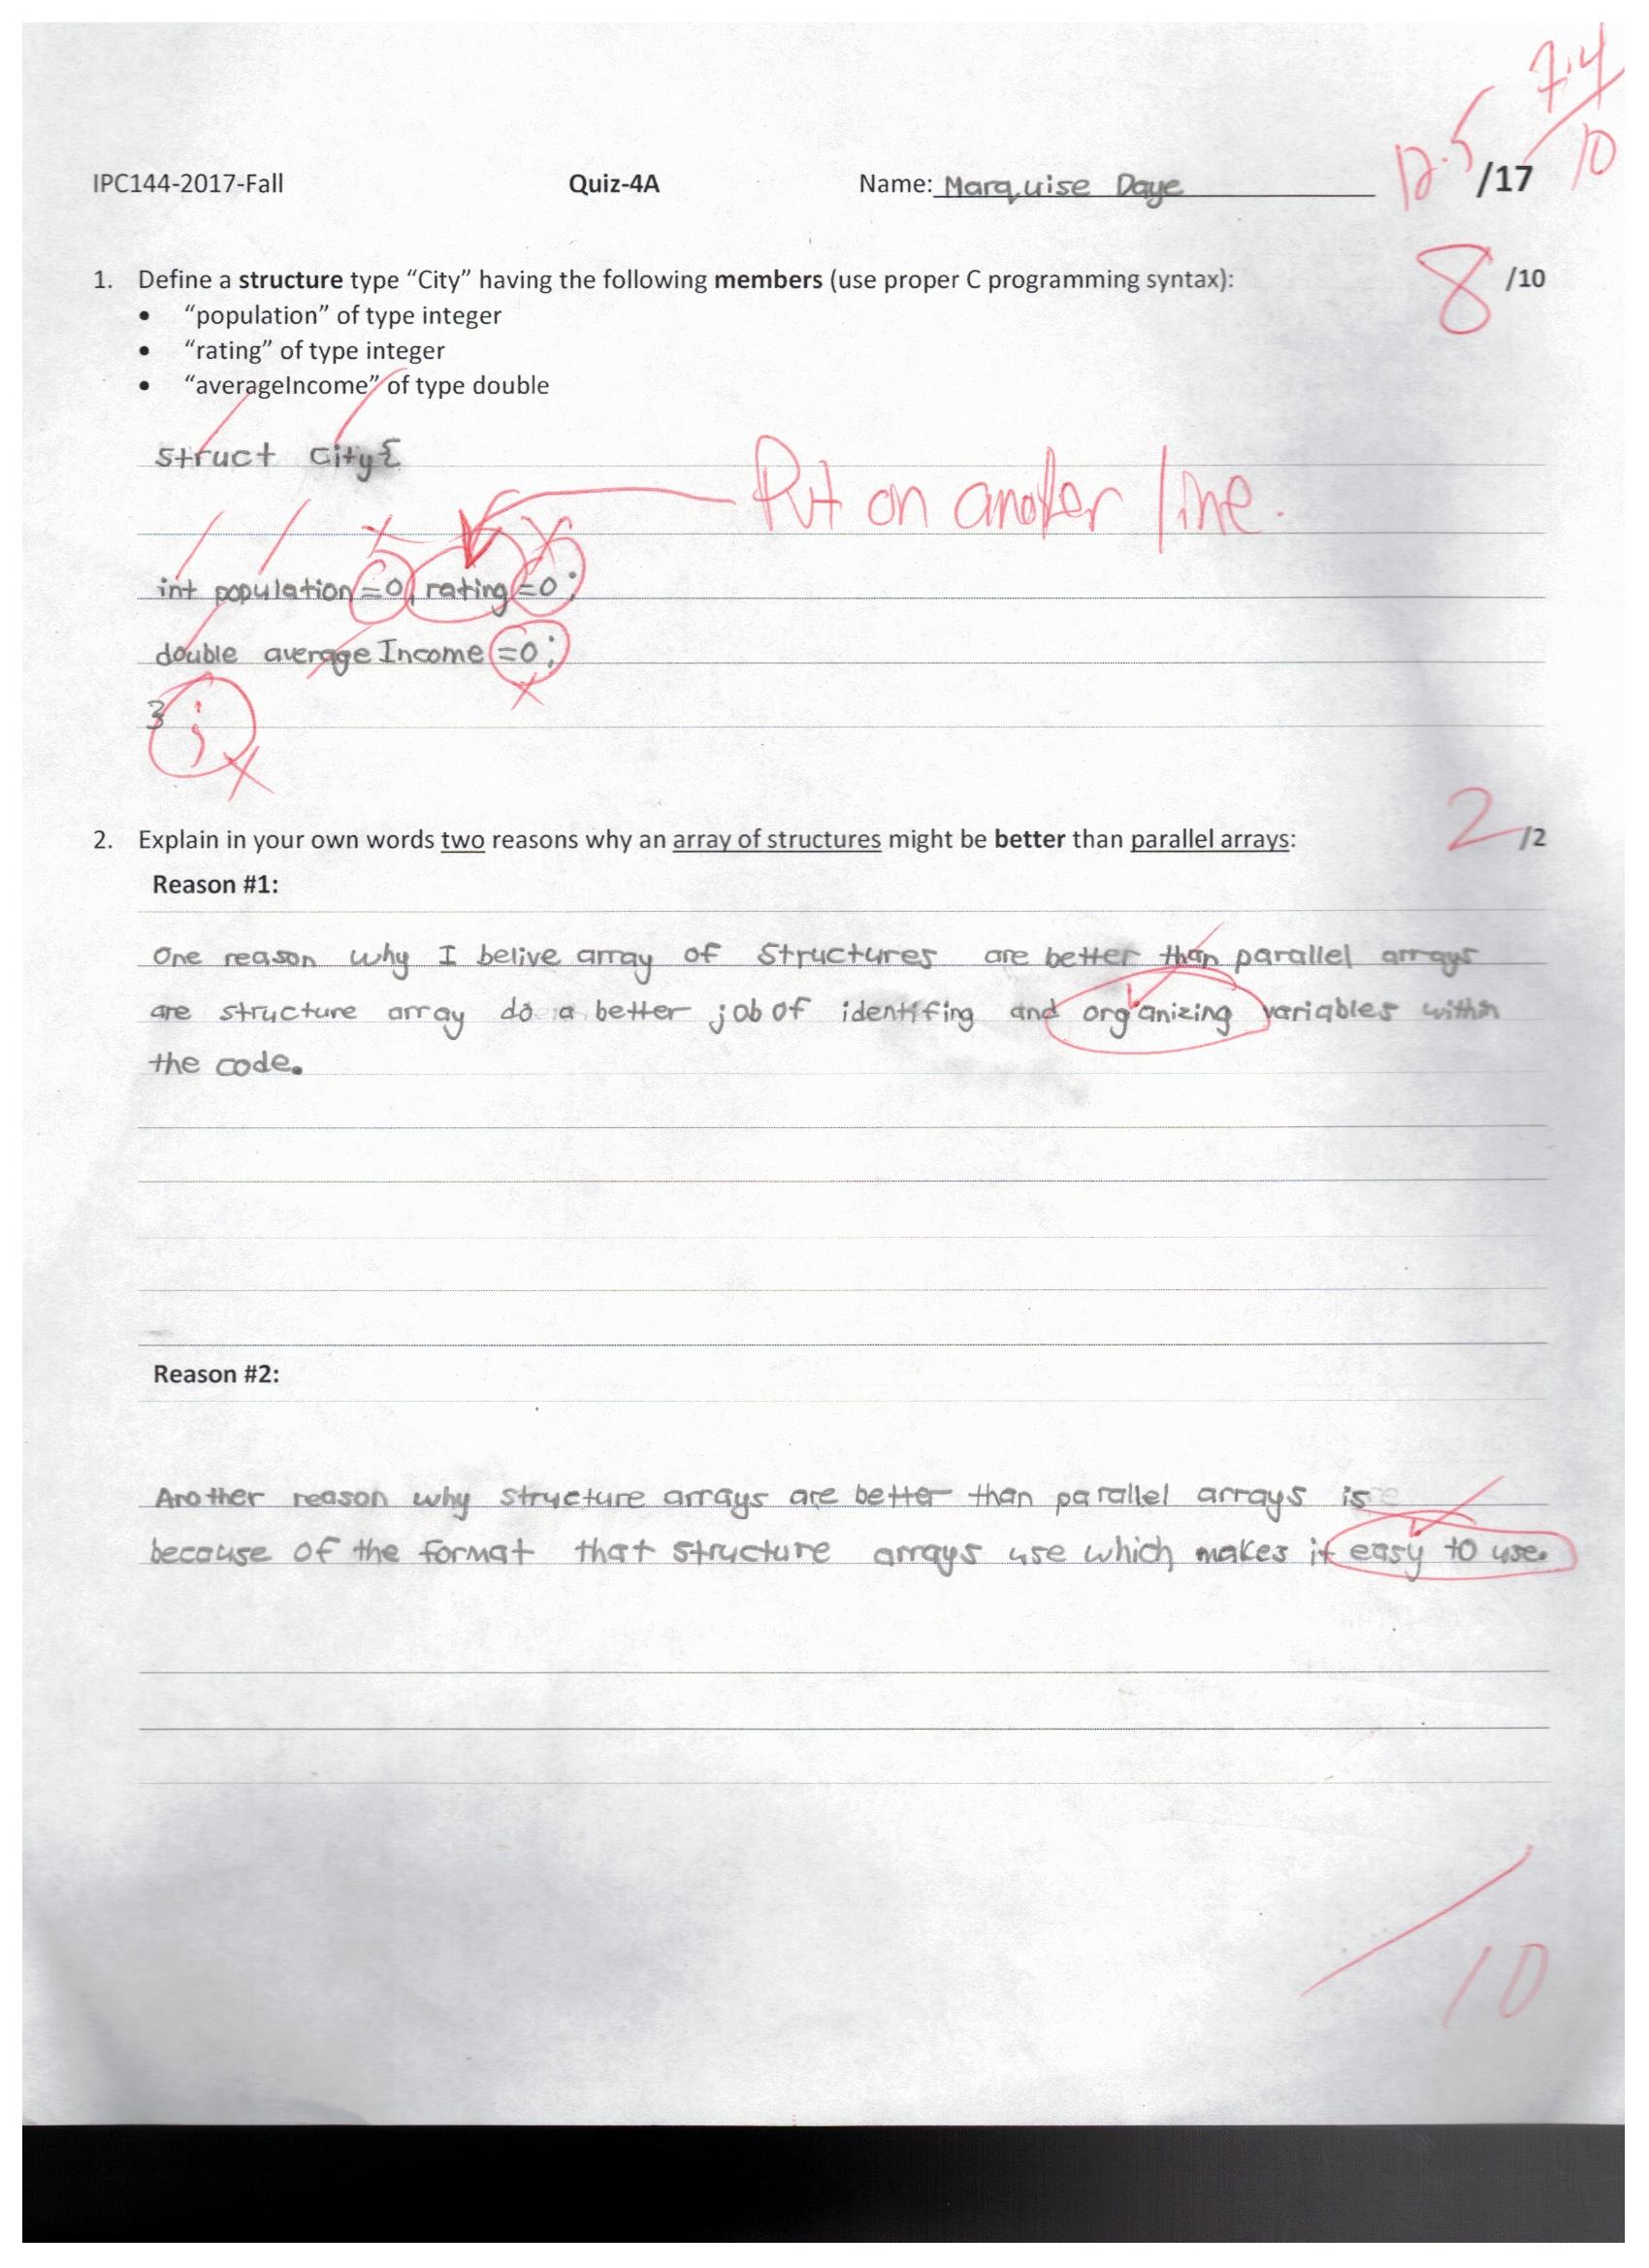 7.4
10
IPC144-2017-Fall Quiz-4A Name: Marquise Daye 12.5 /17
1. Define a structure type “City” having the following members (use proper C programming syntax): 8 /10
• “population” of type integer
• “rating” of type integer
• “averageIncome” of type double
struct City{
Put on another line.
int population =0, rating =0;
double average Income =0;
} ;
2. Explain in your own words two reasons why an array of structures might be better than parallel arrays: 2 /2
Reason #1:
One reason why I belive array of structures are better than parallel arrays
are structure array do a better job of identifing and organizing variables within
the code.
Reason #2:
Another reason why structure arrays are better than parallel arrays is
because of the format that structure arrays use which makes it easy to use.
/10